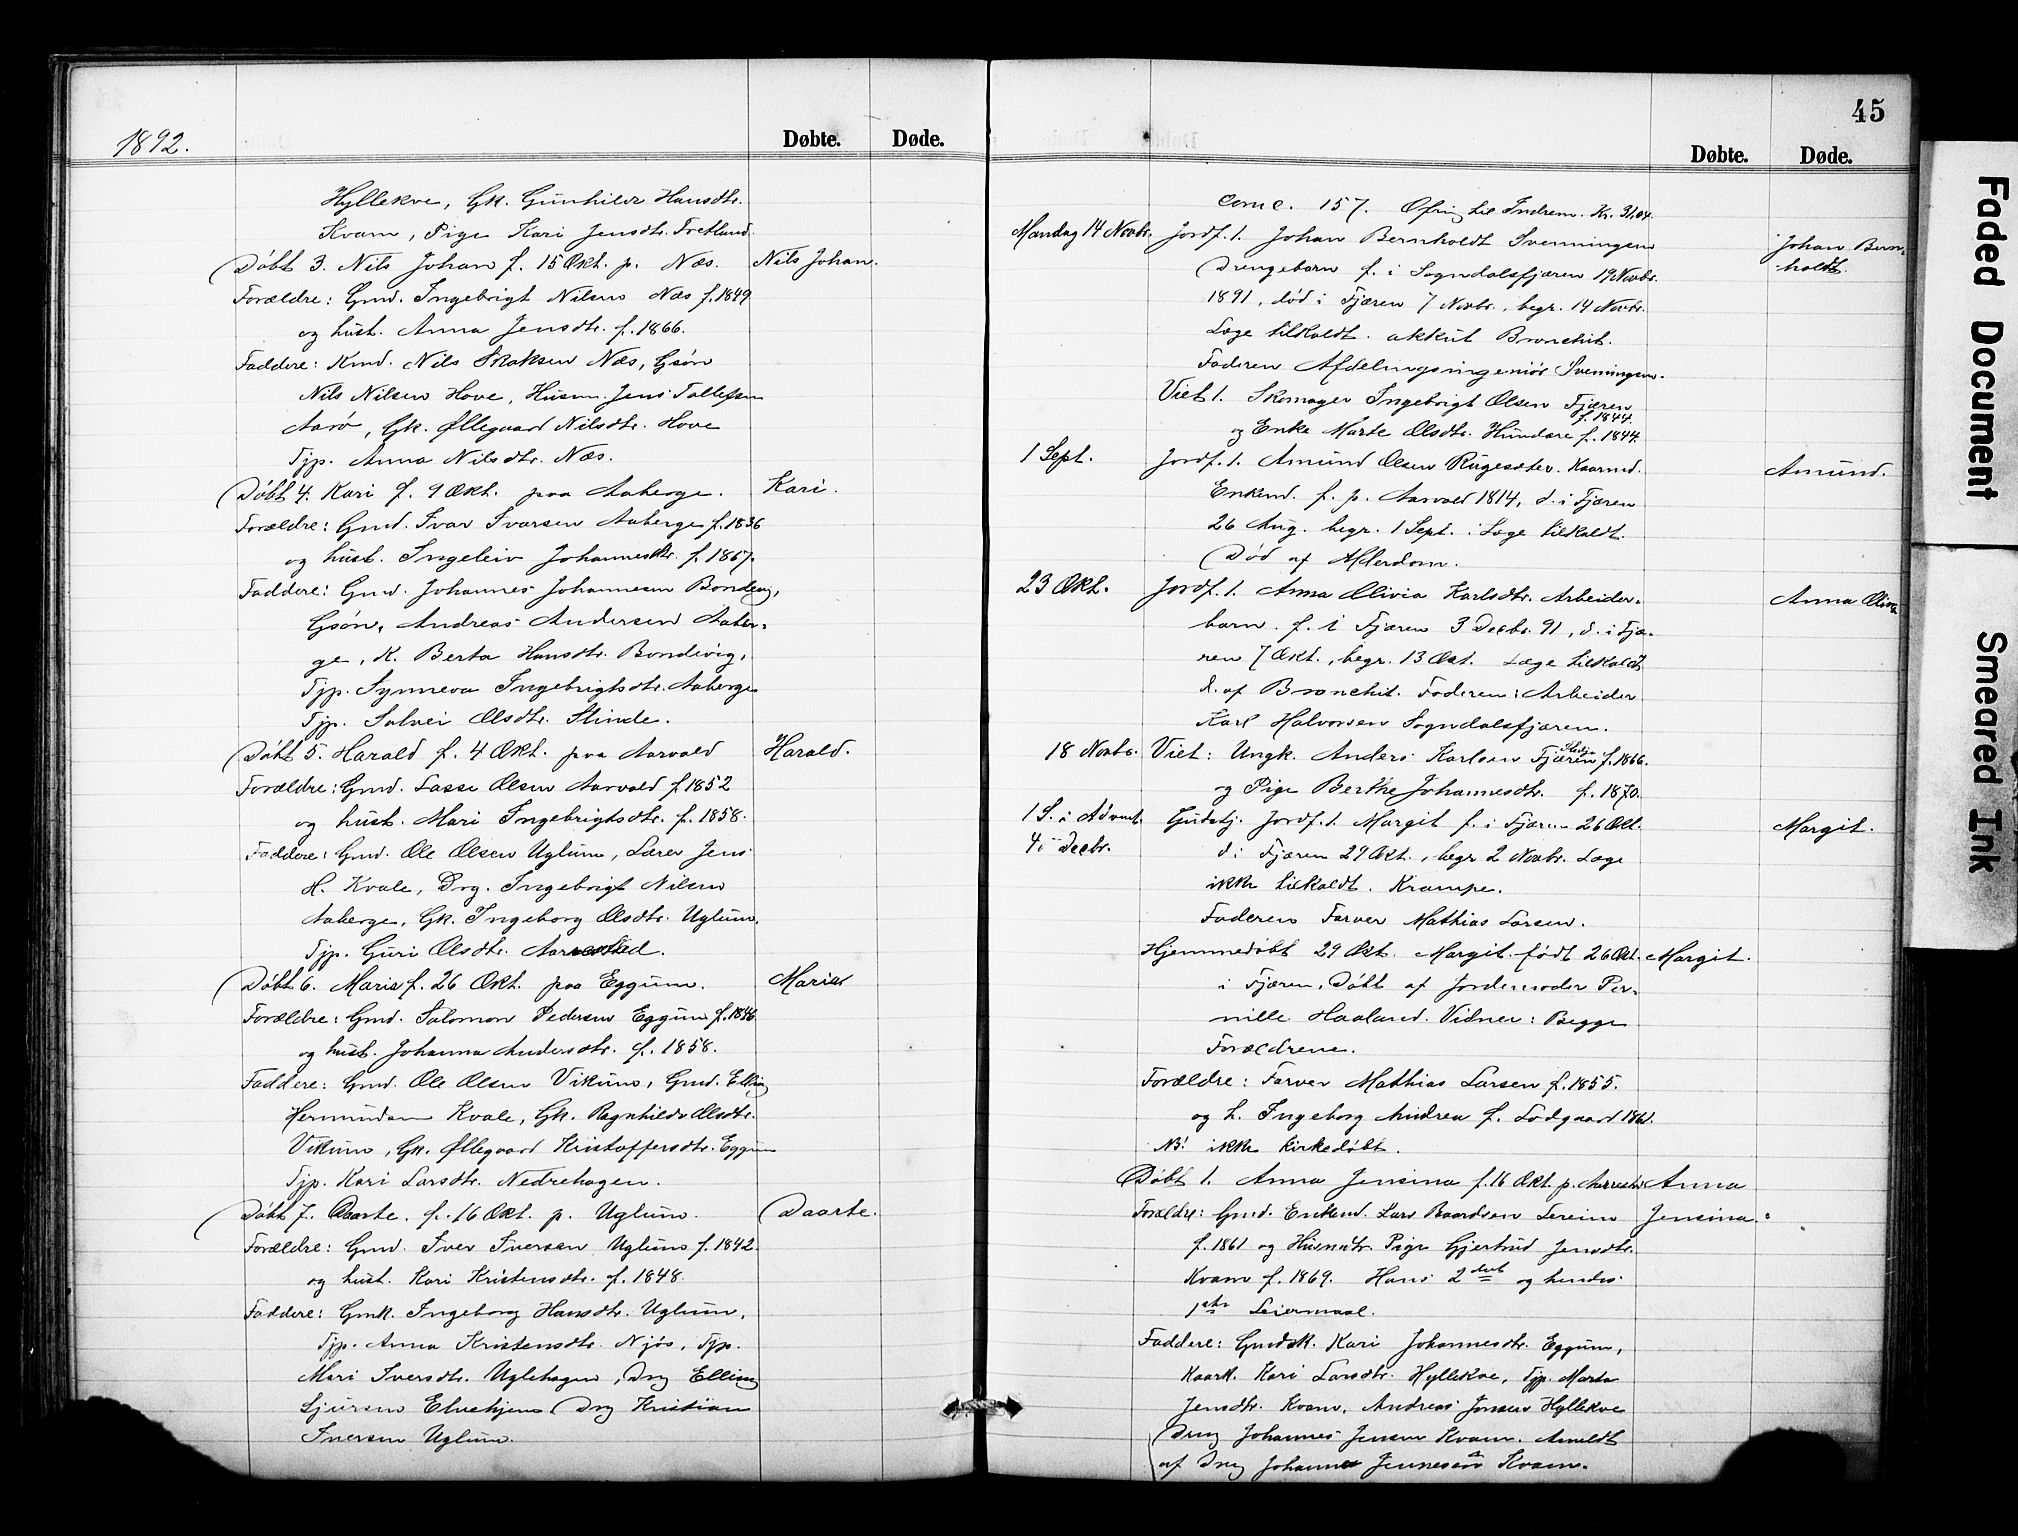 1892.
Døbte. Døde.
Hyllekve, Gk. Gunhild Hansdtr.
Kvam, Pige Kari Jensdtr. Fretland.
Døbt 3. Nils Johan f. 15 Okt. p. Næs. Nils Johan.
Forældre: Gmd. Ingebrigt Nilsen Næs f. 1849
og hust. Anna Jensdtr. f. 1866.
Faddere: Kmd. Nils Isaksen Næs, Gsøn
Nils Nilsen Hove, Husm. Jens Tollefsen
Aarø, Gk. Øllegaard Nilsdtr. Hove
Tjp. Anna Nilsdtr. Næs.
Døbt 4. Kari f. 9 Okt. paa Aaberge. Kari.
Forældre: Gmd. Ivar Ivarsen Aaberge f. 1836
og hust. Ingeleiv Johannesdtr. f. 1867.
Faddere: Gmd. Johannes Johannesen Bondevig,
Gsøn, Andreas Andersen Aaber-
ge, K. Berta Hansdtr. Bondevig,
Tjp. Synneva Ingebrigtsdtr. Aaberge
Tjp. Solvei Olsdtr. Stinde.
Døbt 5. Harald f. 4 Okt. paa Aarvold Harald.
Forældre: Gmd. Lasse Olsen Aarvold f. 1852
og hust. Mari Ingebrigtsdtr. f. 1858.
Faddere: Gmd. Ole Olsen Uglum, Lærer Jens
H. Kvale, Drg. Ingebrigt Nilsen
Aaberge, Gk. Ingeborg Olsdtr. Uglum,
Tjp. Guri Olsdtr.
Døbt 6. Maria f. 26 Okt. paa Eggum. Maria
Forældre: Gmd. Salomon Pedersen Eggum f. 1846
og hust. Johanna Andersdtr. f. 1858.
Faddere: Gmd. Ole Olsen Vikum, Gmd. Elling
Hermundsen Kvale, Gk. Ragnhild Olsdtr.
Vikum, Gk. Øllegaard Kristoffersdtr. Eggum
Tjp. Kari Larsdtr. Nedrehagen.
Døbt 7. Daarte. f. 16 Okt. p. Uglum. Daarte.
Forældre: Gmd. Iver Iversen Uglum f. 1842.
og hust. Kari Kristensdtr. f. 1848.
Faddere: Gmk. Ingeborg Hansdtr. Uglum,
Tjp. Anna Kristensdtr. Njøs, Tjp.
Mari Iversdtr. Uglehagen, Drg Elling
Sjursen Elvehjem, Drg Kristian
Iversen Uglum.
45
Døbte. Døde.
Comc. 157. Ofring til Indrem. Kr. 31,04.
Mandag 14 Novbr. Jordf. 1. Johan Bernholdt Svenningsen Johan Bern-
Drengebarn f. i Sogndalsfjæren 19 Novbr. holdt.
1891, død i Fjæren 7 Novbr., begr. 14 Novbr.
Læge tilkaldt. akkut Bronchit.
Faderen Afdelingsingeniør Svenningsen.
Viet 1. Skomager Ingebrigt Olsen Fjæren
f. 1844.
og Enke Marte Olsdtr. Hundere f. 1844.
1 Sept. Jordf. 1. Amund Olsen Rugesæter. Kaarmd. Amund.
Enkemd. f. p. Aarvold 1814, d. i Fjæren
26 Aug. begr. 1 Sept. Læge tilkaldt.
Død af Alderdom.
23 Okt. Jordf. 1. Anna Olivia Karlsdtr. Arbeider- Anna Olivia
barn. f. i Fjæren 3 Decbr. 91, d. i Fjæ-
ren 7 Okt., begr. 13 Okt. Læge tilkaldt
d. af Bronchit. Faderen: Arbeider
Karl Halvorsen Sogndalsfjæren.
18 Novbr. Viet: Ungk. Anders Karlsen Fjæren f. 1866.
og Pige Berthe Johannesdtr. f. 1870.
1 S. i Advent. Gudstj. Jordf. 1. Margit f. i Fjæren 26 Okt. Margit.
4 Decbr. d. i Fjæren 29 Okt., begr 2 Novbr. Læge
ikke tilkaldt. Krampe.
Faderen Farver Mathias Larsen.
Hjemmedøbt 29 Okt. Margit født 26 Okt. Margit.
i Fjæren, Døbt af Jordemoder Per-
nille Haaland. Vidner: Begge
Forældrene.
Forældre: Farver Mathias Larsen f. 1855.
og h. Ingeborg Andrea f. Lodgaard 1861.
NB! ikke kirkedøbt.
Døbt 1. Anna Jensina f. 16 Okt. p. Anna
Forældre: Gmd. Enkemd. Lars Baardsen Lereim Jensina.
f. 1861 og Husmdtr. Pige Gjertrud Jensdtr.
Kvam f. 1869. Hans 2det og hendes
1ste Leiermaal.
Faddere: Gmdsk. Kari Johannesdtr. Eggum,
Kaark. Kari Larsdtr. Hyllekve, Tjp. Marta
Jensdtr. Kvam, Andreas Jonsen Hyllekve
Dreng Johannes Jensen Kvam. Anmeldt
af Drg Johannes Kvam.
Faded Document
Smeared Ink